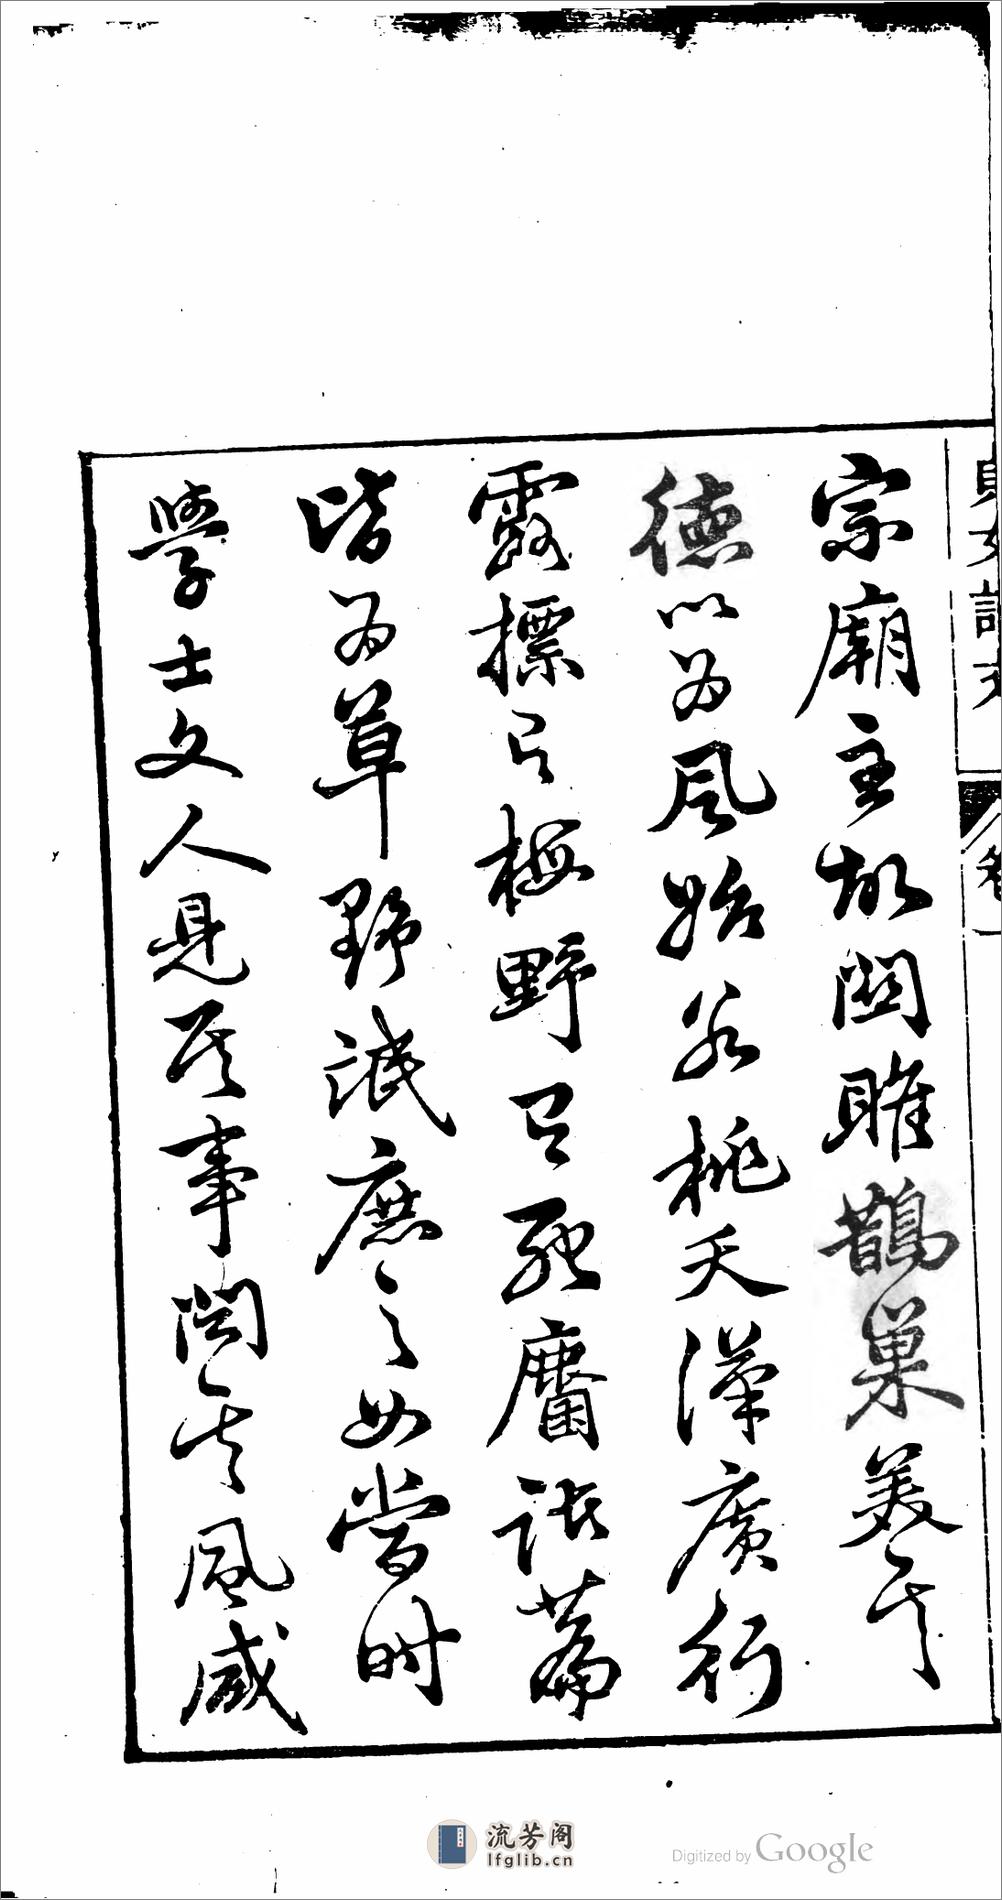 宗廟主故關雎鵲巢美其
德以為風始若桃夭漢廣行
露摽有梅野有死麕諸篇
皆為草野氓庶之女當時
學士文人見其事聞其風咸
貞女詩
卷一
流芳阁
lfglib.cn
Digitized by Google